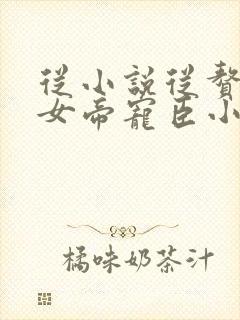 從小說從贅
女帝寵臣小
橘味奶茶汁